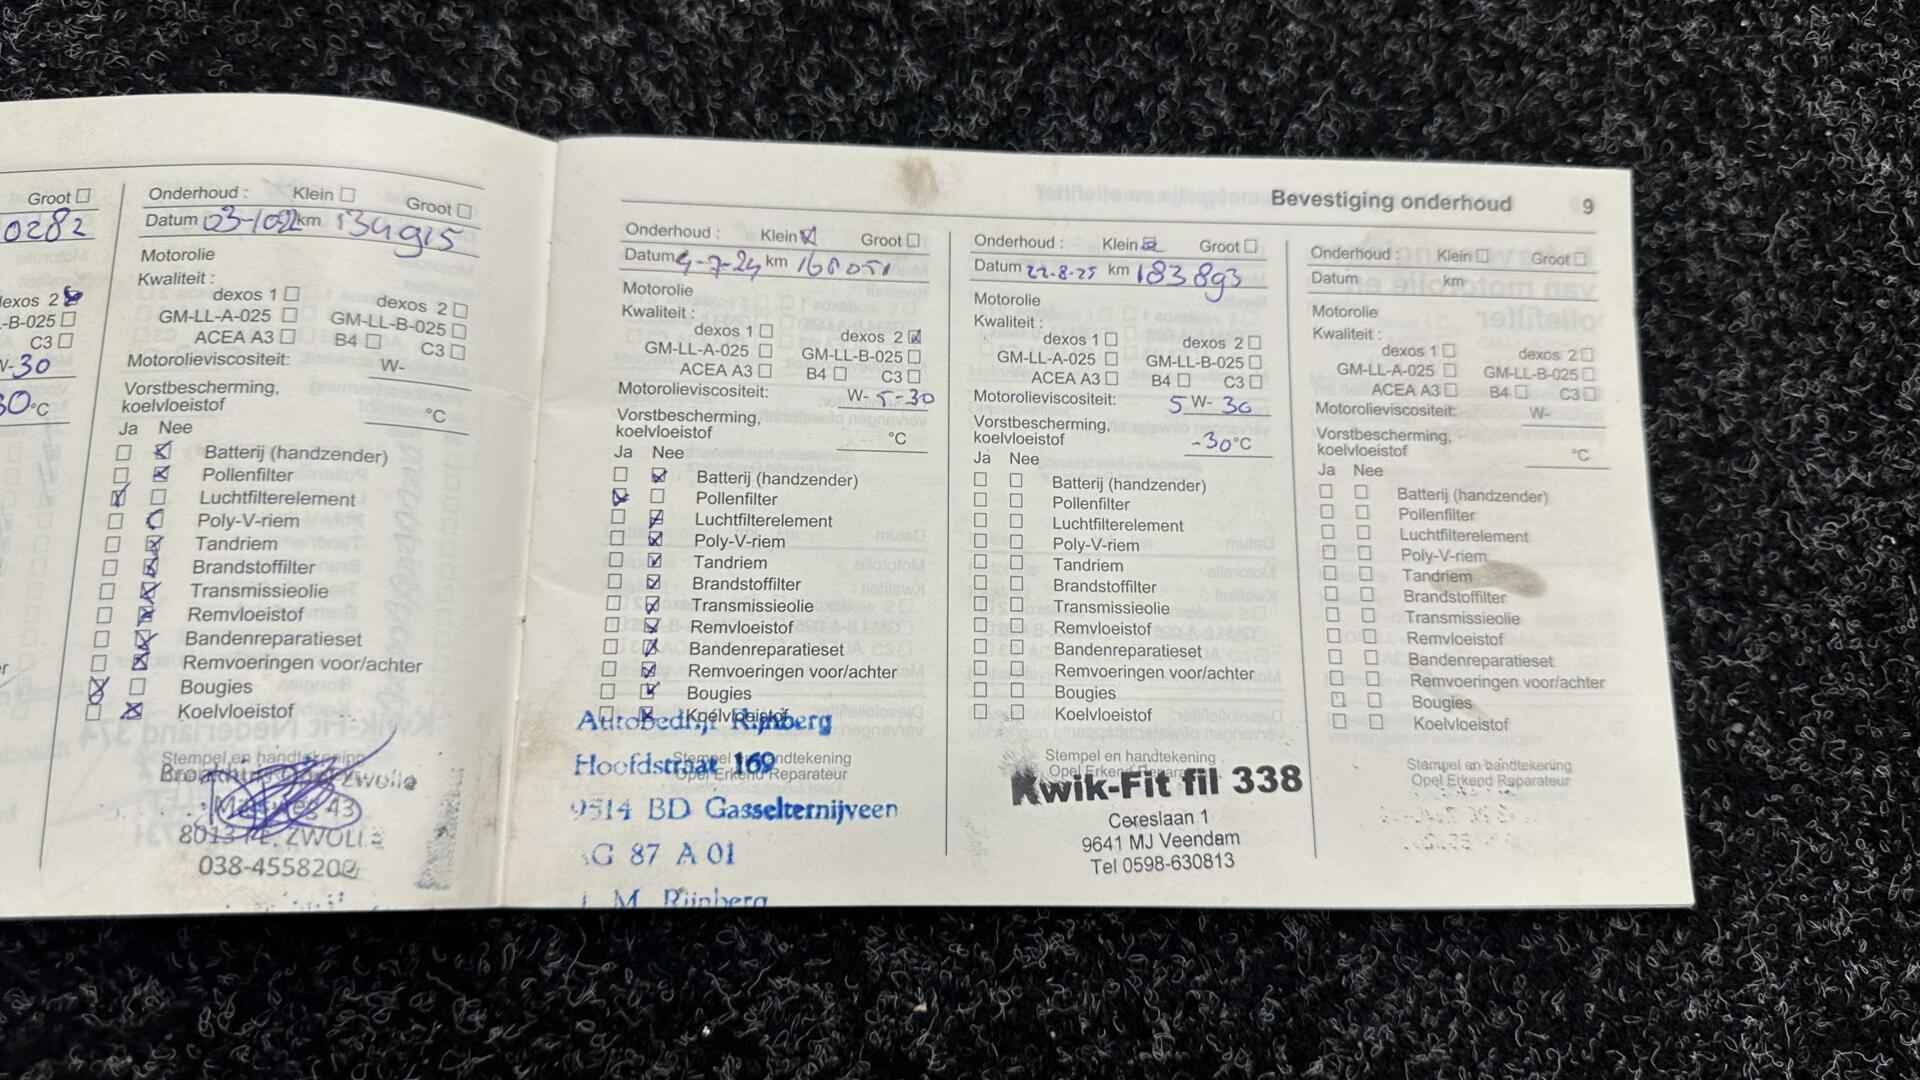 Groot
0282
dexos 2
L-B-025
C3
W-30
30°C
Onderhoud : Klein Groot
Datum 03-1022 km 134915
Motorolie
Kwaliteit :
dexos 1 dexos 2
GM-LL-A-025 GM-LL-B-025
ACEA A3 B4 C3
Motorolieviscositeit: W-
Vorstbescherming,
koelvloeistof °C
Ja Nee
Batterij (handzender)
Pollenfilter
Luchtfilterelement
Poly-V-riem
Tandriem
Brandstoffilter
Transmissieolie
Remvloeistof
Bandenreparatieset
Remvoeringen voor/achter
Bougies
Koelvloeistof
Stempel en handtekening
Zwolle
43
ZWOLLE
038-4558200
Bevestiging onderhoud 9
Onderhoud : Klein Groot
Datum 4-7-24 km 168051
Motorolie
Kwaliteit :
dexos 1 dexos 2
GM-LL-A-025 GM-LL-B-025
ACEA A3 B4 C3
Motorolieviscositeit: W- 5-30
Vorstbescherming,
koelvloeistof °C
Ja Nee
Batterij (handzender)
Pollenfilter
Luchtfilterelement
Poly-V-riem
Tandriem
Brandstoffilter
Transmissieolie
Remvloeistof
Bandenreparatieset
Remvoeringen voor/achter
Bougies
Koelvloeistof
Autobedrijf Rijnberg
Stempel en handtekening
Hoofdstraat 169
Opel Erkend Reparateur
9514 BD Gasselternijveen
G 87 A 01
M. Rijnberg
Onderhoud : Klein Groot
Datum 22-8-25 km 183893
Motorolie
Kwaliteit :
dexos 1 dexos 2
GM-LL-A-025 GM-LL-B-025
ACEA A3 B4 C3
Motorolieviscositeit: 5 W- 30
Vorstbescherming,
koelvloeistof -30°C
Ja Nee
Batterij (handzender)
Pollenfilter
Luchtfilterelement
Poly-V-riem
Tandriem
Brandstoffilter
Transmissieolie
Remvloeistof
Bandenreparatieset
Remvoeringen voor/achter
Bougies
Koelvloeistof
Stempel en handtekening
Opel Erkend Reparateur
Kwik-Fit fil 338
Cereslaan 1
9641 MJ Veendam
Tel 0598-630813
Onderhoud : Klein Groot
Datum km
Motorolie
Kwaliteit :
dexos 1 dexos 2
GM-LL-A-025 GM-LL-B-025
ACEA A3 B4 C3
Motorolieviscositeit: W-
Vorstbescherming,
koelvloeistof °C
Ja Nee
Batterij (handzender)
Pollenfilter
Luchtfilterelement
Poly-V-riem
Tandriem
Brandstoffilter
Transmissieolie
Remvloeistof
Bandenreparatieset
Remvoeringen voor/achter
Bougies
Koelvloeistof
Stempel en handtekening
Opel Erkend Reparateur